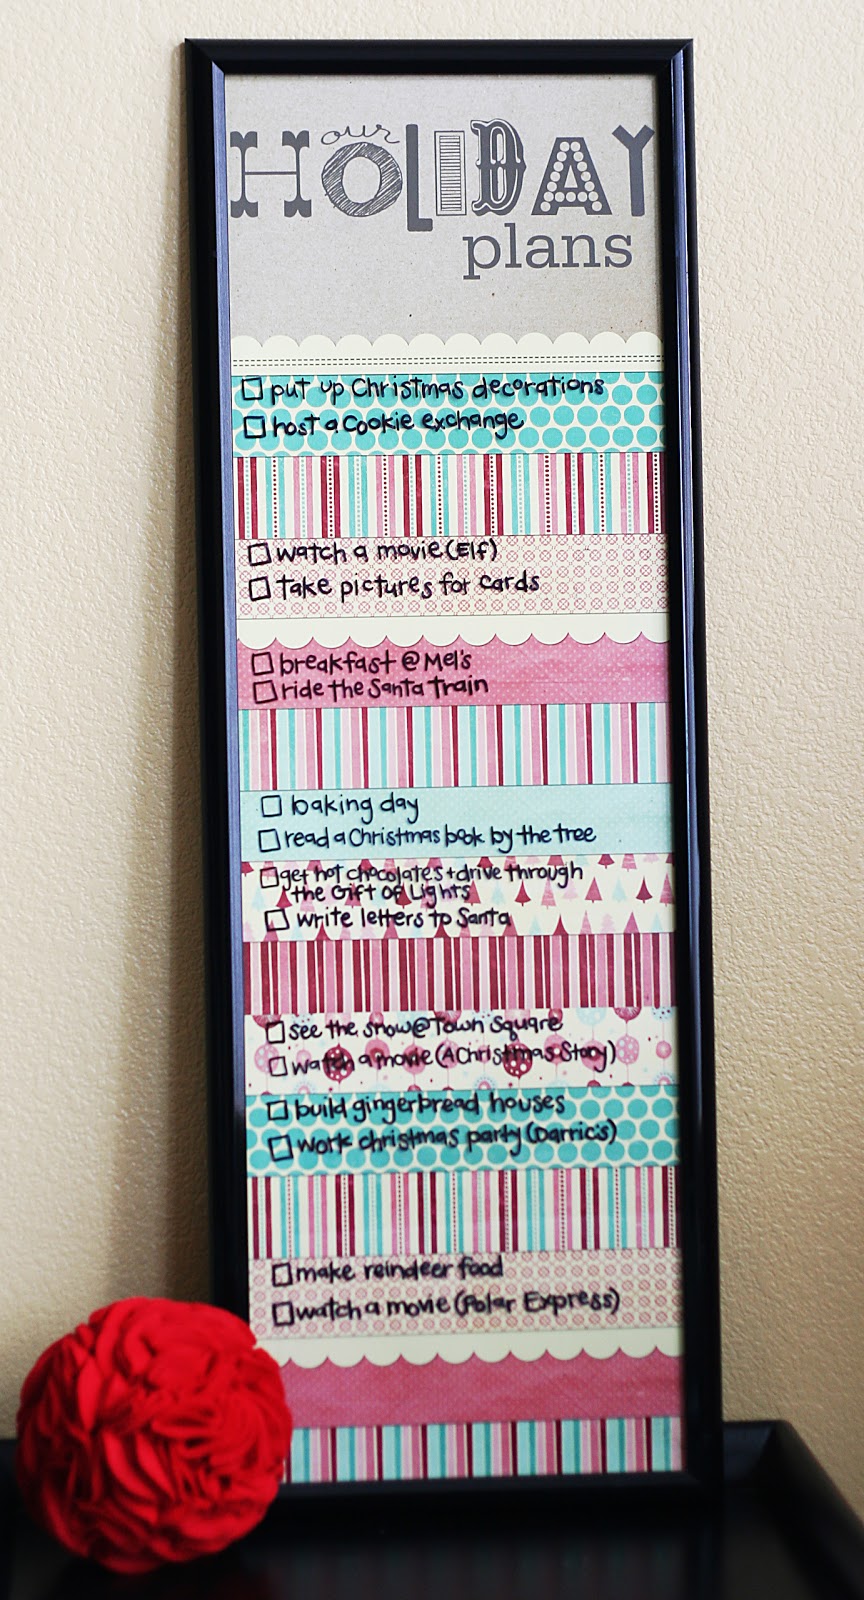 our
HOLIDAY
plans
put up Christmas decorations
host a Cookie exchange
watch a movie (Elf)
take pictures for cards
breakfast @ Mel's
ride the Santa Train
baking day
read a Christmas book by the tree
get hot chocolates + drive through
the Gift of Lights
write letters to Santa
see the snow @ Town Square
watch a movie (A Christmas Story)
build gingerbread houses
work christmas party (Darric's)
make reindeer food
watch a movie (Polar Express)